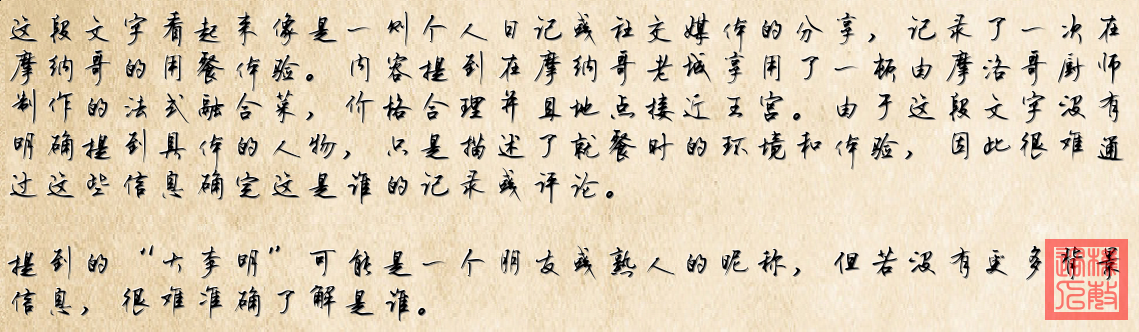 这段文字看起来像是一则个人日记或社交媒体的分享，记录了一次在
摩纳哥的用餐体验。内容提到在摩纳哥老城享用了一顿由摩洛哥厨师
制作的法式融合菜，价格合理并且地点接近王宫。由于这段文字没有
明确提到具体的人物，只是描述了就餐时的环境和体验，因此很难通
过这些信息确定这是谁的记录或评论。
提到的“大李明”可能是一个朋友或熟人的昵称，但若没有更多背景
信息，很难准确了解是谁。